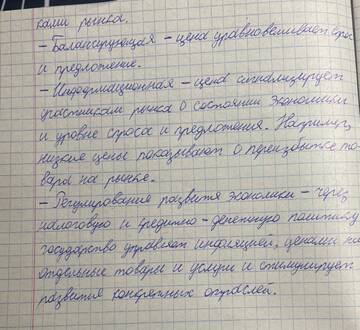 ками рынка.
- Балансирующая - цена уравновешивает спрос
и предложение.
- Информационная - цена сигнализирует
участникам рынка о состоянии экономики
и уровне спроса и предложения. Например,
низкие цены показывают о переизбытке то-
вара на рынке.
- Регулирование развития экономики - через
налоговую и кредитно-денежную политику
государство управляет инфляцией, ценами на
отдельные товары и услуги и стимулирует
развития конкретных отраслей.